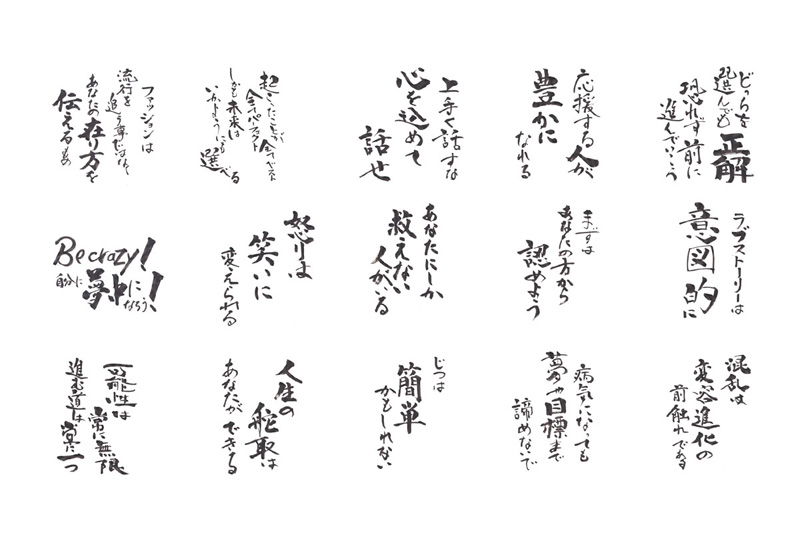 どちらを
選んでも
正解
恐れず前に
進んでいこう
応援する人が
豊かに
なれる
上手く話すな
心を込めて
話せ
起こったことが全てベスト
全て
ベスト
しかも未来は
いかようにも選べる
ファッションは
流行を
追う事ではなくて
あなたの在り方を
伝えるもの
ラブストーリーは
意図的に
まずは
あなたの方から
認めよう
あなたにしか
救えない
人がいる
怒りは
笑いに
変えられる
Be crazy!
自分に夢中になろう!
混乱は
変容進化の
前触れである
病気になっても
夢や目標まで
諦めないで
じつは
簡単
かもしれない
人生の
舵取は
あなたができる
可能性は
常に無限
進む道は
常に一つ